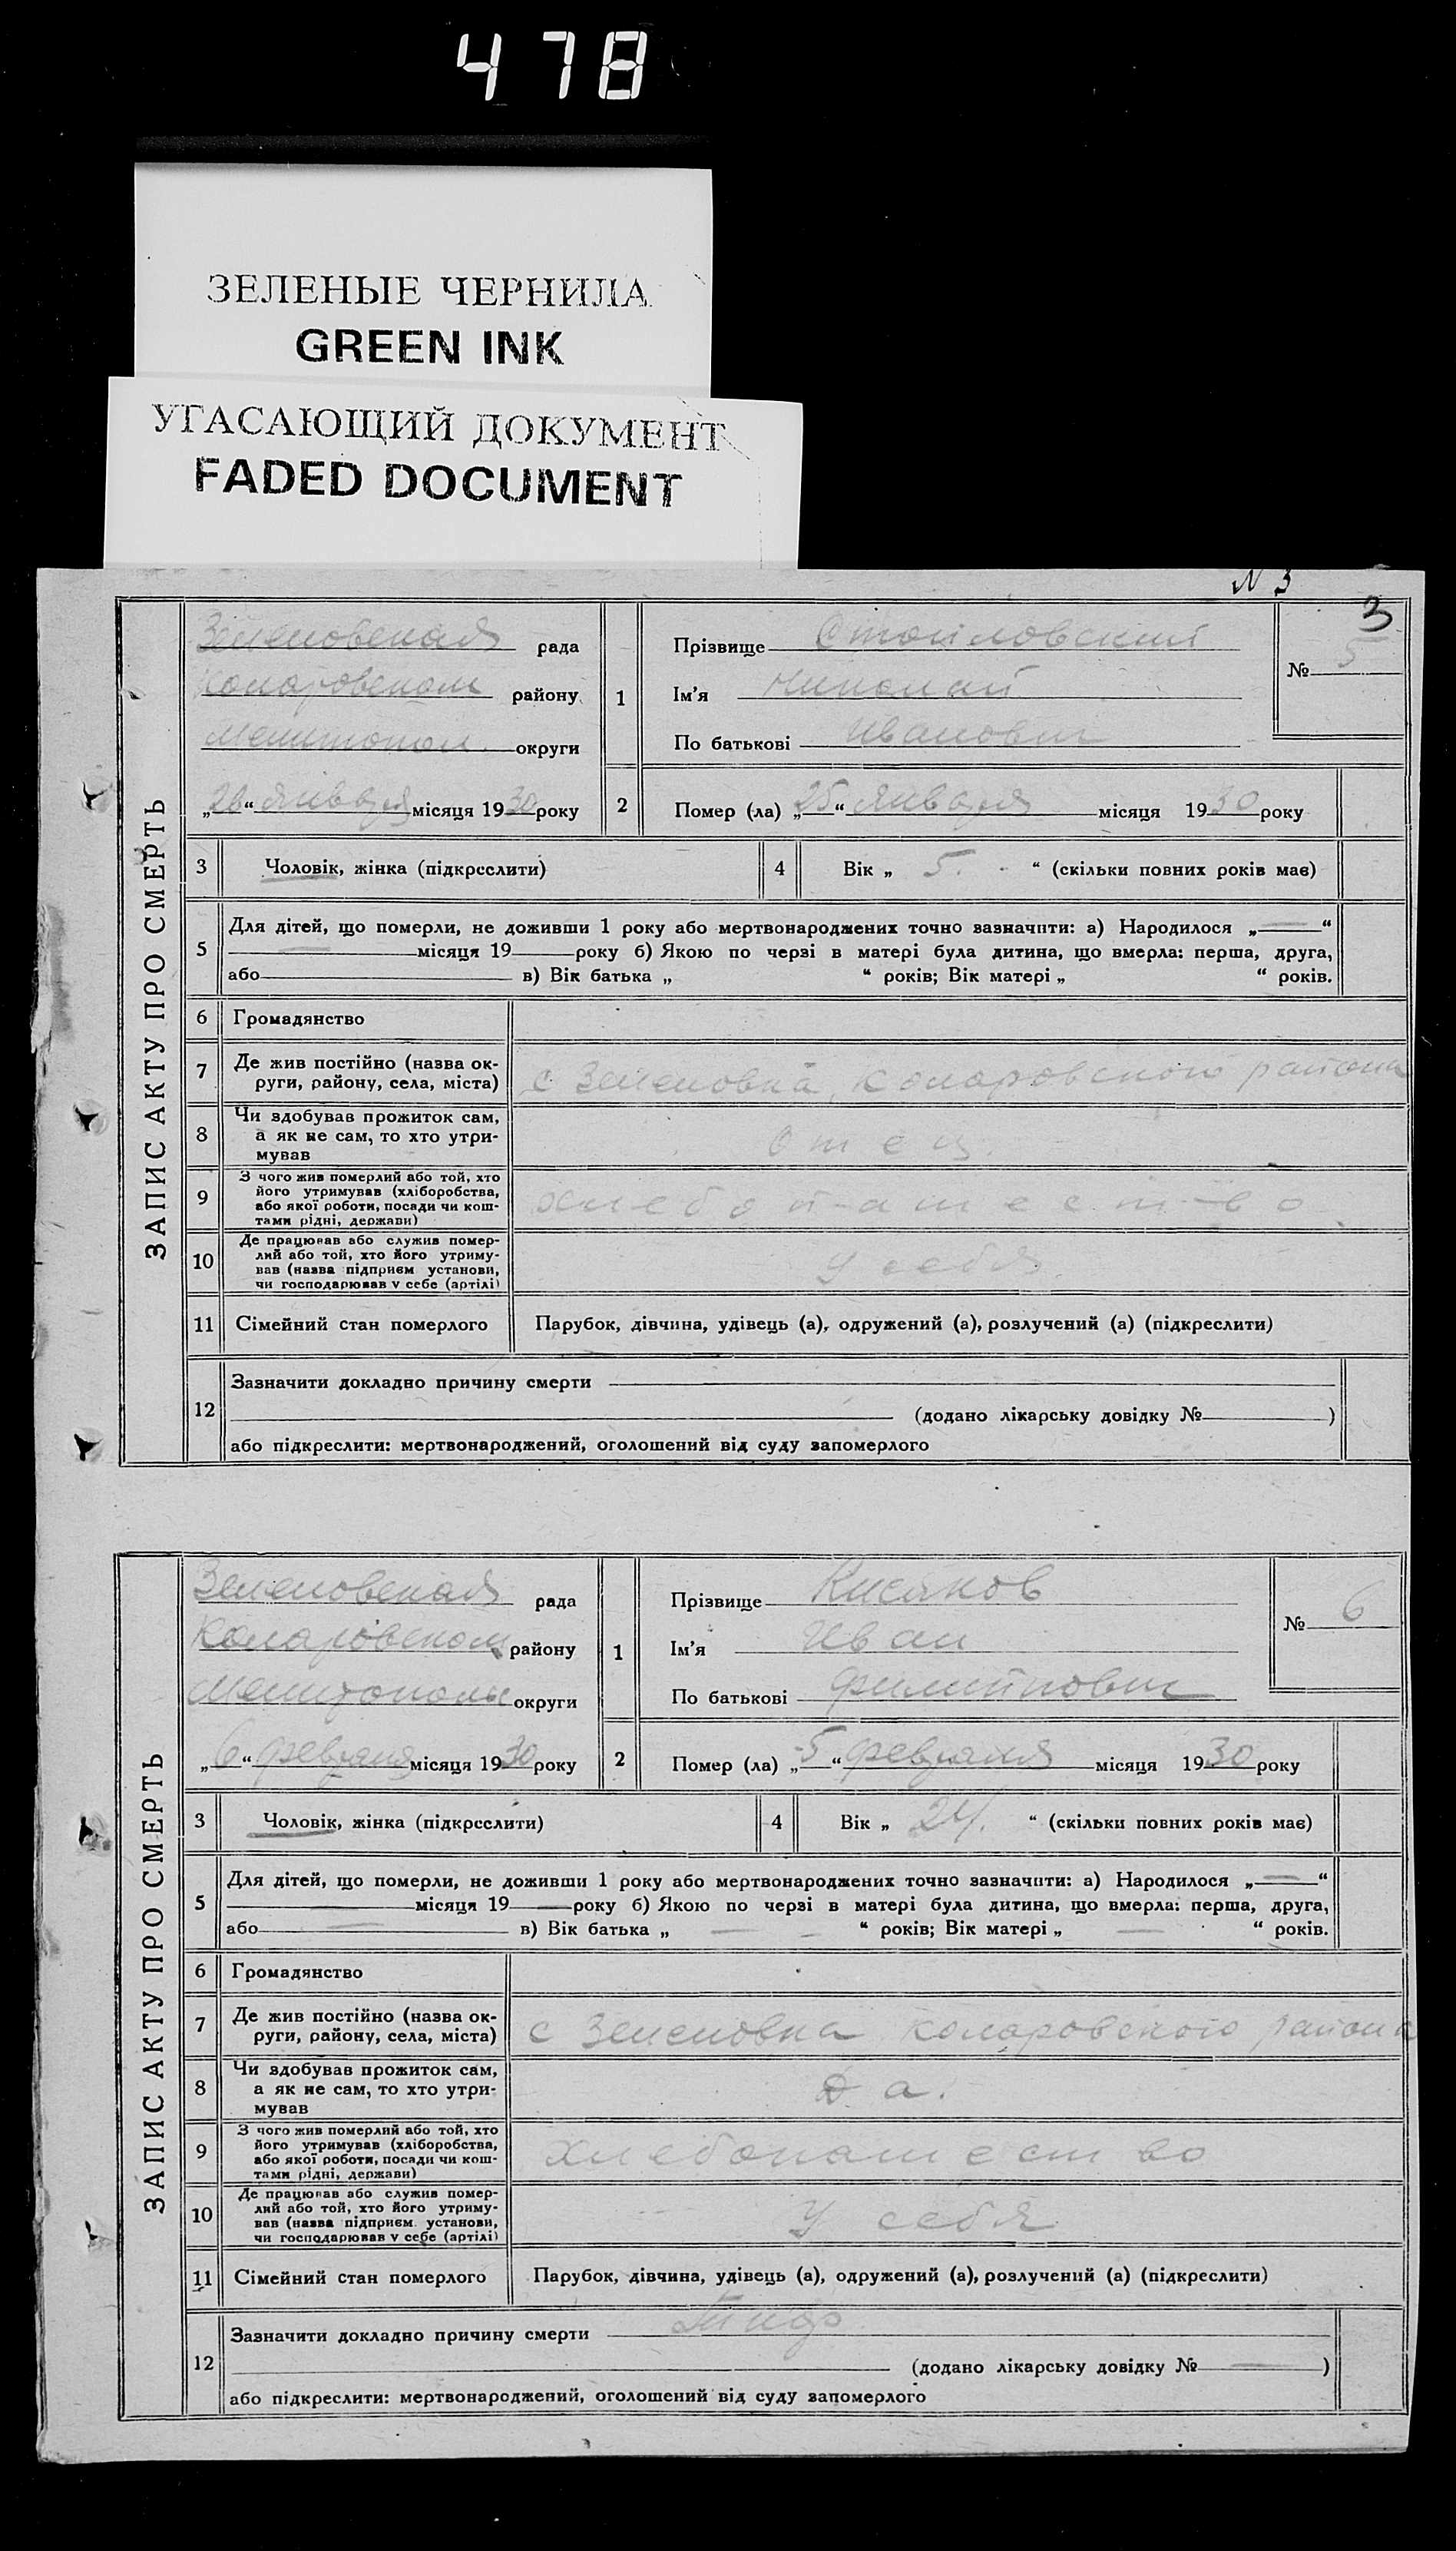 478
ЗЕЛЕНЫЕ ЧЕРНИЛА
GREEN INK
УГАСАЮЩИЙ ДОКУМЕНТ
FADED DOCUMENT
N 3
3
ЗАПИС АКТУ ПРО СМЕРТЬ
Зеленовская рада
Коларовском району
округи
„26“ января місяця 1930 року
1
Прізвище Стойловский
Ім’я Николай
По батькові Иванович
№ 5
2 Помер (ла) „25“ января місяця 1930 року
3 Чоловік, жінка (підкреслити)
4 Вік „ 5. “ (скільки повних років має)
5 Для дітей, що померли, не доживши 1 року або мертвонароджених точно зазначити: а) Народилося „—“
— місяця 19 року б) Якою по черзі в матері була дитина, що вмерла: перша, друга,
або в) Вік батька „ “ років; Вік матері „ “ років.
6 Громадянство
7 Де жив постійно (назва ок-
руги, району, села, міста)
с Зеленовка, Коларовского района
8 Чи здобував прожиток сам,
а як не сам, то хто утри-
мував
отец.
9 З чого жив померлий або той, хто
його утримував (хліборобства,
або якої роботи, посади чи кош-
тами рідні, держави)
хлебопашество.
10 Де працював або служив помер-
лий або той, хто його утриму-
вав (назва підприєм установи,
чи господарював у себе (артілі)
у себя.
11 Сімейний стан померлого Парубок, дівчина, удівець (а), одружений (а), розлучений (а) (підкреслити)
12 Зазначити докладно причину смерти
(додано лікарську довідку № )
або підкреслити: мертвонароджений, оголошений від суду запомерлого
ЗАПИС АКТУ ПРО СМЕРТЬ
Зеленовская рада
Коларовском району
округи
„6“ февраля місяця 1930 року
1
Прізвище
Ім’я Иван
По батькові Филиппович
№ 6
2 Помер (ла) „5“ февраля місяця 1930 року
3 Чоловік, жінка (підкреслити)
4 Вік „ 24. “ (скільки повних років має)
5 Для дітей, що померли, не доживши 1 року або мертвонароджених точно зазначити: а) Народилося „—“
— місяця 19 року б) Якою по черзі в матері була дитина, що вмерла: перша, друга,
або — в) Вік батька „ — “ років; Вік матері „ — “ років.
6 Громадянство
7 Де жив постійно (назва ок-
руги, району, села, міста)
с Зеленовка Коларовского района
8 Чи здобував прожиток сам,
а як не сам, то хто утри-
мував
Да.
9 З чого жив померлий або той, хто
його утримував (хліборобства,
або якої роботи, посади чи кош-
тами рідні, держави)
хлебопашество
10 Де працював або служив помер-
лий або той, хто його утриму-
вав (назва підприєм. установи,
чи господарював у себе (артілі)
У себя
11 Сімейний стан померлого Парубок, дівчина, удівець (а), одружений (а), розлучений (а) (підкреслити)
12 Зазначити докладно причину смерти
(додано лікарську довідку № — )
або підкреслити: мертвонароджений, оголошений від суду запомерлого